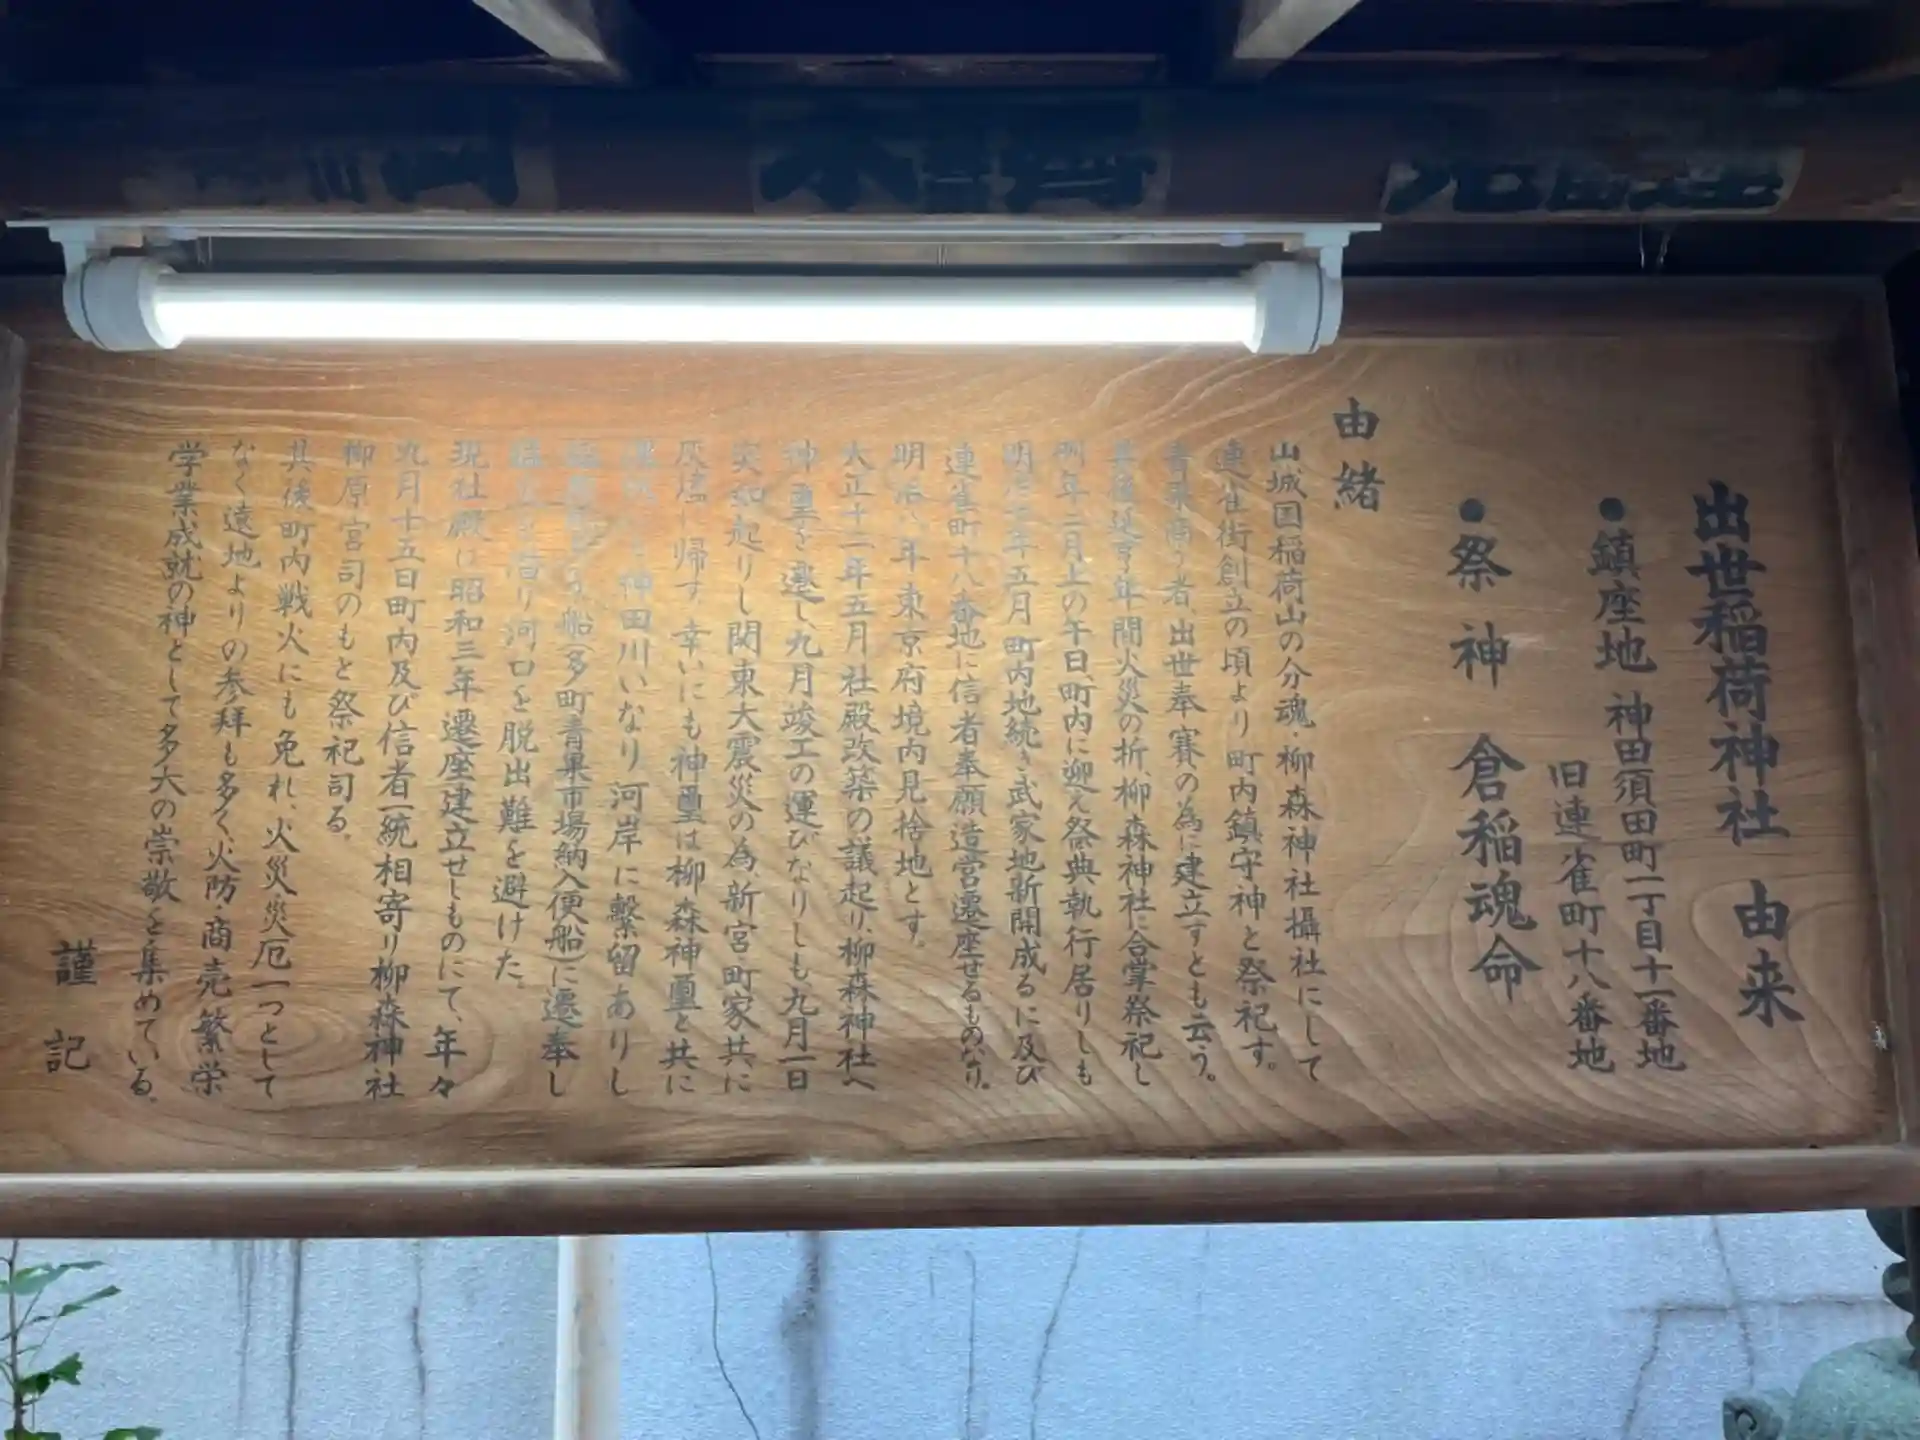 出世稲荷神社 由来
●鎮座地 神田須田町一丁目十一番地
旧連雀町十八番地
●祭神 倉稲魂命
由緒
山城国稲荷山の分魂・柳森神社攝社にして
連雀街創立の頃より町内鎮守神と祭祀す。
青果商う者、出世奉賽の為に建立すとも云う。
其後延享年間火災の折、柳森神社に合掌祭祀し
例年二月上の午日、町内に迎え祭典執行居りしも
明治二年五月町内地続き武家地新開成るに及び
連雀町十八番地に信者奉願造営遷座せるものなり。
明治八年東京府境内見捨地とす。
大正十二年五月社殿改築の議起り、柳森神社へ
神璽を遷し、九月竣工の運びなりしも九月一日
突如起りし関東大震災の為、新宮・町家共に
灰燼に帰す、幸いにも神璽は柳森神璽と共に
神田川いなり河岸に繋留ありし
船(多町青果市場納入便船)に遷奉し
河口を脱出難を避けた。
現社殿は昭和三年遷座建立せしものにて、年々
九月十五日町内及び信者一統相寄り柳森神社
柳原宮司のもと祭祀司る。
其後町内戦火にも免れ、火災災厄一つとして
なく遠地よりの参拝も多く、火防・商売繁栄
学業成就の神として多大の崇敬を集めている。
謹記